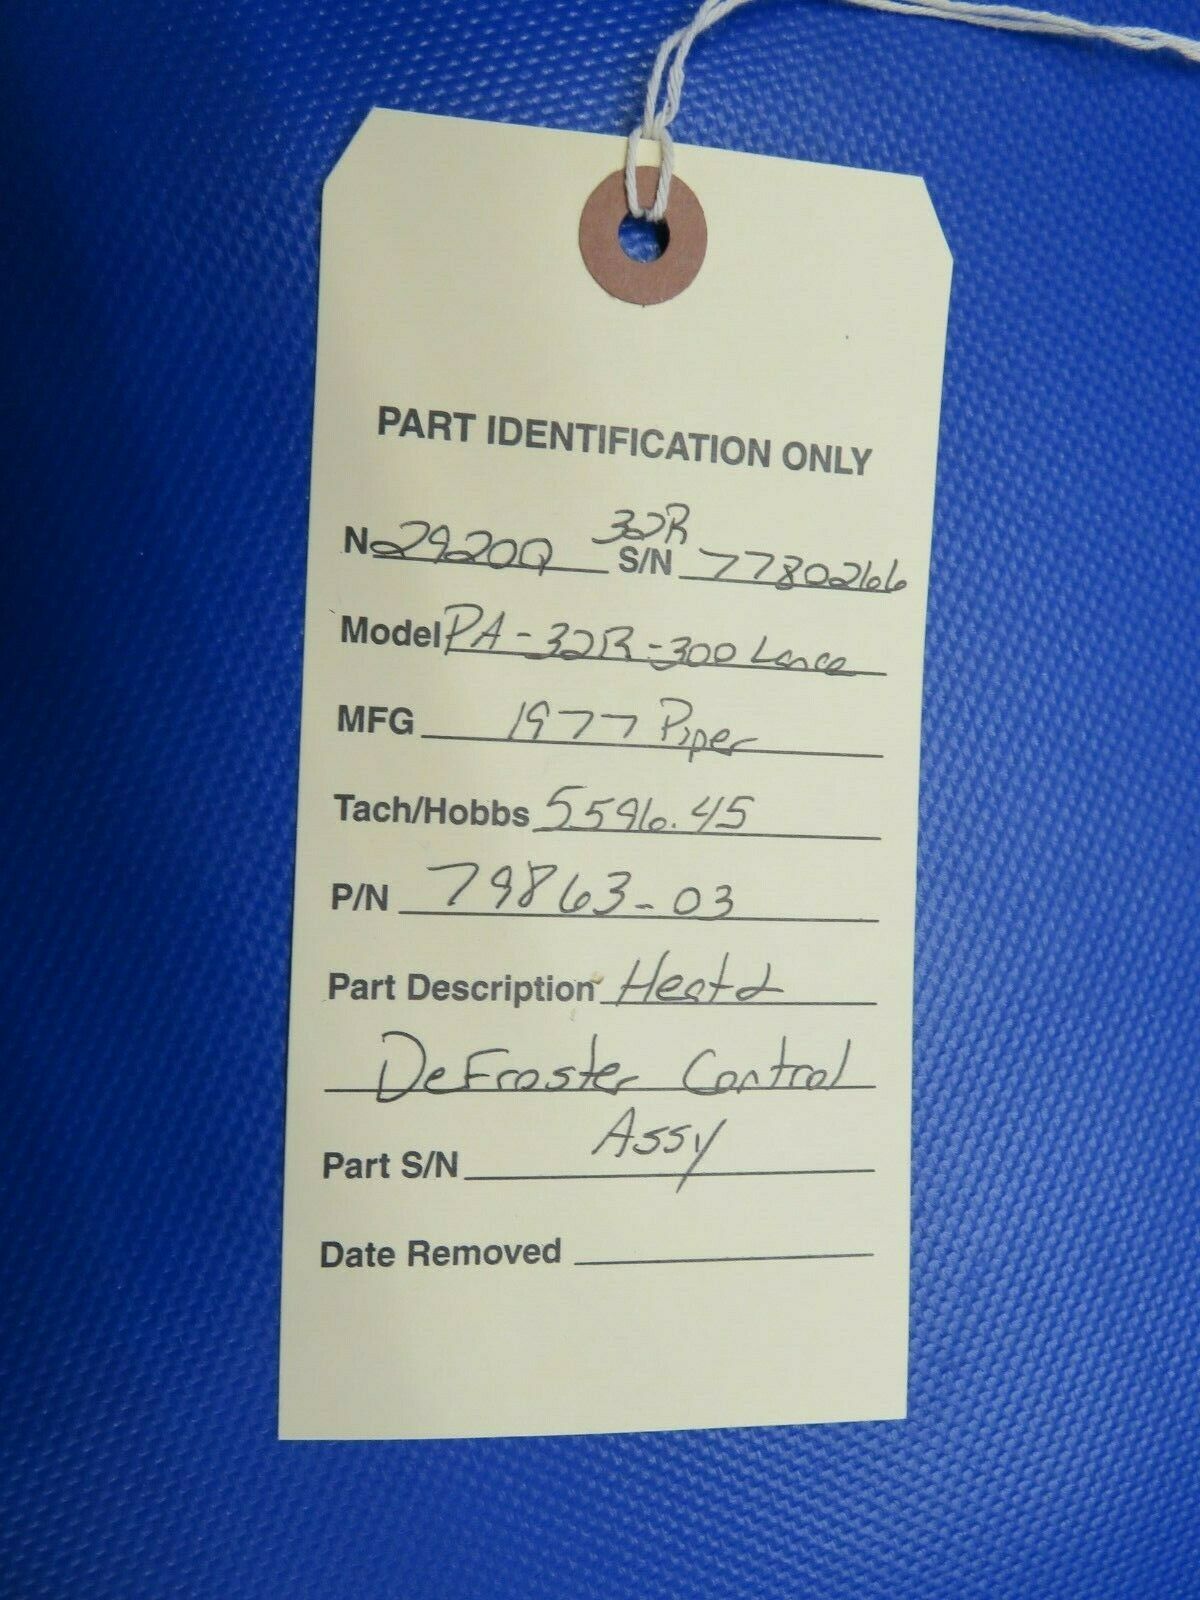 PART IDENTIFICATION ONLY
N 2920Q S/N 32R 7780266
Model PA-32R-300 Lance
MFG 1977 Piper
Tach/Hobbs 5596.45
P/N 79863-03
Part Description Heat &
DeFroster Control
Assy
Part S/N
Date Removed